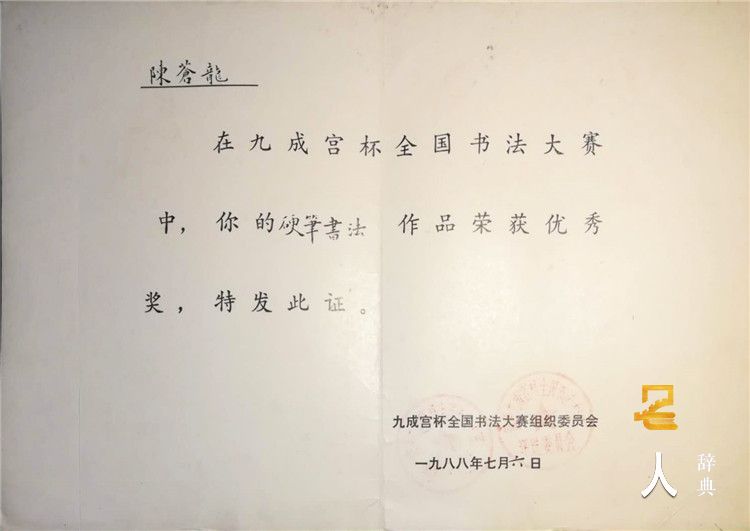 陳蒼龍
在九成宫杯全国书法大赛
中，你的硬筆書法 作品荣获优秀
奖，特发此证。
九成宫杯全国书法大赛组织委员会
一九八八年七月六日
名人
辞典